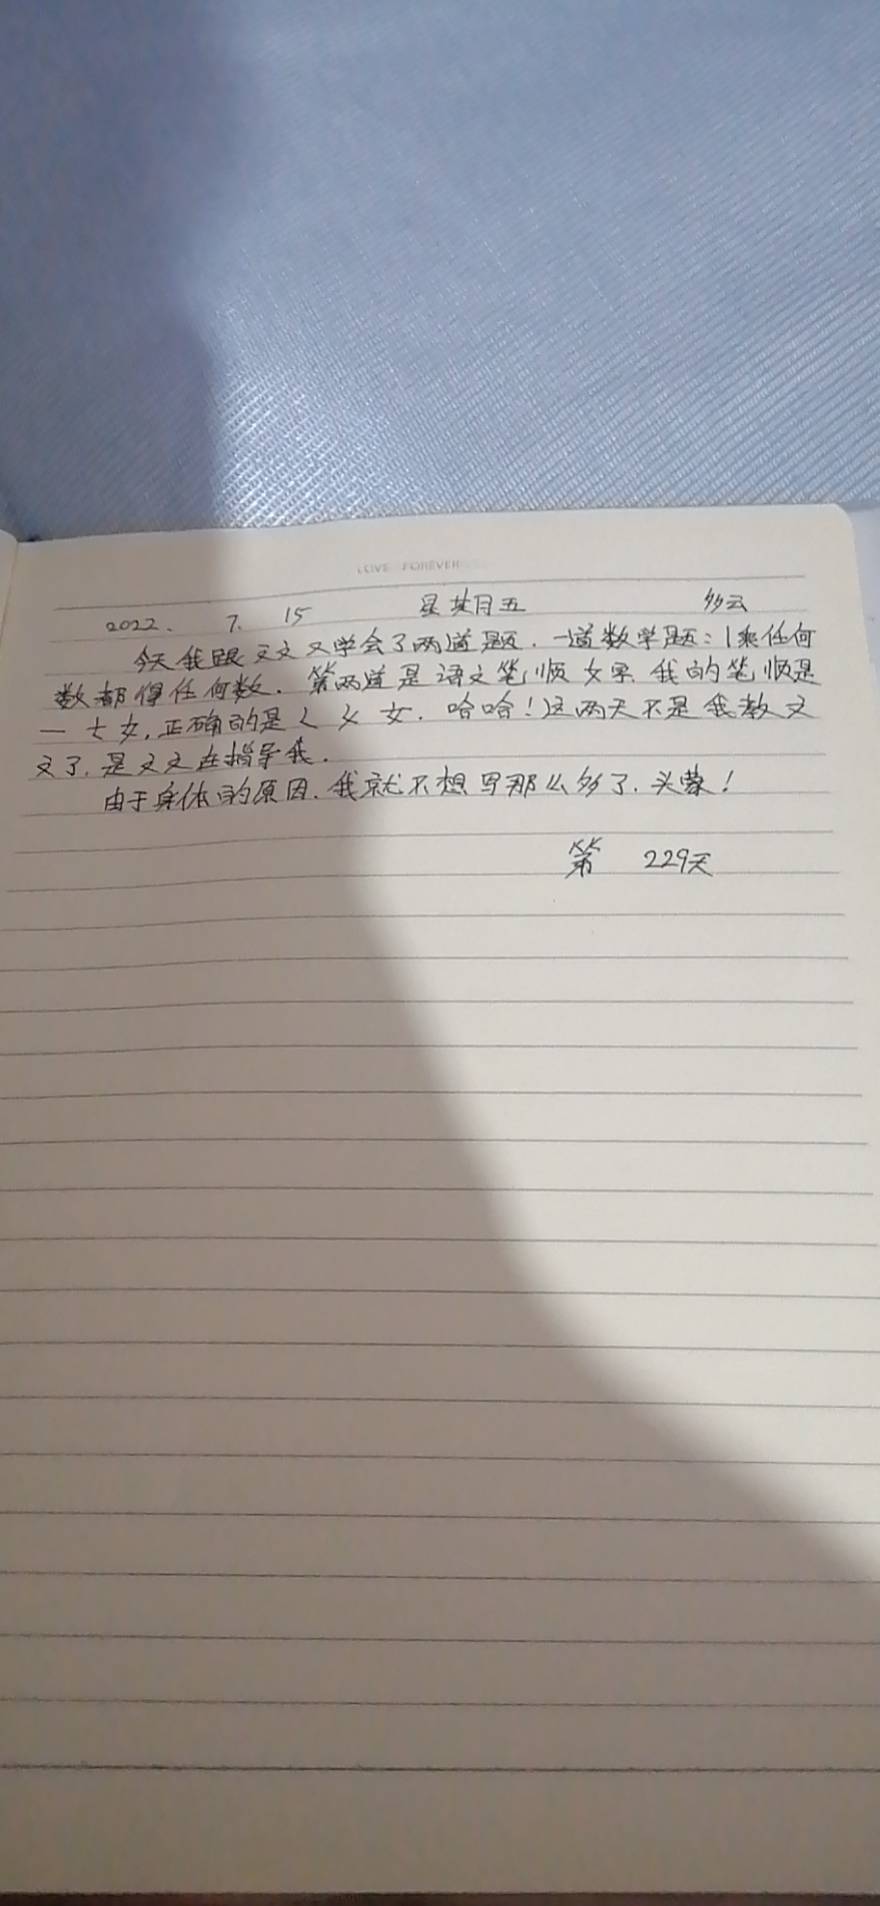 LOVE FOREVER
2022. 7. 15 星期五 多云
今天我跟文文又学会了两道题.一道数学题:1乘任何
数都得任何数.第两道是语文笔顺女字.我的笔顺是
一 𠂇 女,正确的是く 㐅 女.哈哈!这两天不是我教文
文了.是文文在指导我.
由于身体的原因.我就不想写那么多了.头晕!
第 229天